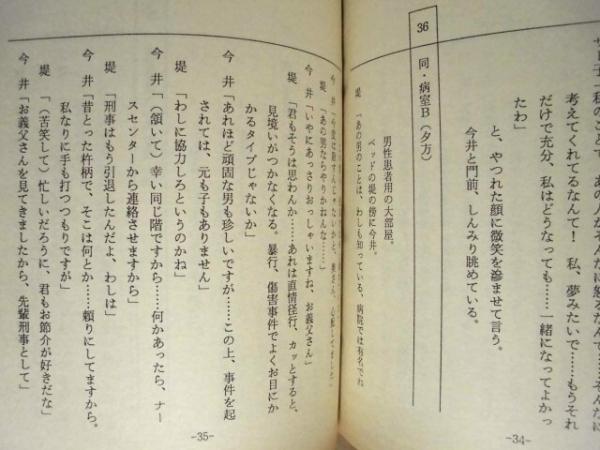 考えてくれてるなんて！　私、夢みたいで……もうそれ
だけで充分、私はどうなっても……一緒になってよかっ
たわ」
と、やつれた顔に微笑を滲ませて言う。
今井と門前、しんみり眺めている。
36　同・病室B（夕方）
男性患者用の大部屋。
ベッドの堤の傍に今井。
堤　「あの男のことは、わしも知っている、病院では有名でね
-34-
堤　「あの男ならやりかねんな……」
今　井「いやにあっさりおっしゃいますね、お義父さん」
堤　「君もそうは思わんか……あれは直情径行、カッとすると、
見境いがつかなくなる。暴行、傷害事件でよくお目にか
かるタイプじゃないか」
今　井「あれほど頑固な男も珍しいですが……この上、事件を起
されては、元も子もありません」
堤　「わしに協力しろというのかね」
今　井「（頷いて）幸い同じ階ですから……何かあったら、ナー
スセンターから連絡させますから」
堤　「刑事はもう引退したんだよ、わしは」
今　井「昔とった杵柄で、そこは何とか……頼りにしてますから。
私なりに手も打つつもりですが」
堤　「（苦笑して）忙しいだろうに、君もお節介が好きだな」
今　井「お義父さんを見てきましたから、先輩刑事として」
-35-